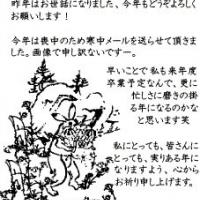 昨年はお世話になりました、今年もどうぞよろしく
お願いします！
今年は喪中のため寒中メールを送らせて頂きま
した。画像で申し訳ないですー。
早いことで私も来年度
卒業予定なんで、更に
忙しさに磨きの掛
る年になるのかな
と思います笑
私にとっても、皆さんに
とっても、実りある年に
なりますよう、心から
お祈り申し上げます。